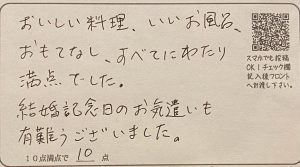 おいしい料理、いいお風呂、
おもてなし、すべてにわたり
満点でした。
結婚記念日のお気遣いも
有難うございました。
10点満点で 10 点
スマホでも投稿
OK！チェック欄
記入後フロント
へお渡し下さい。